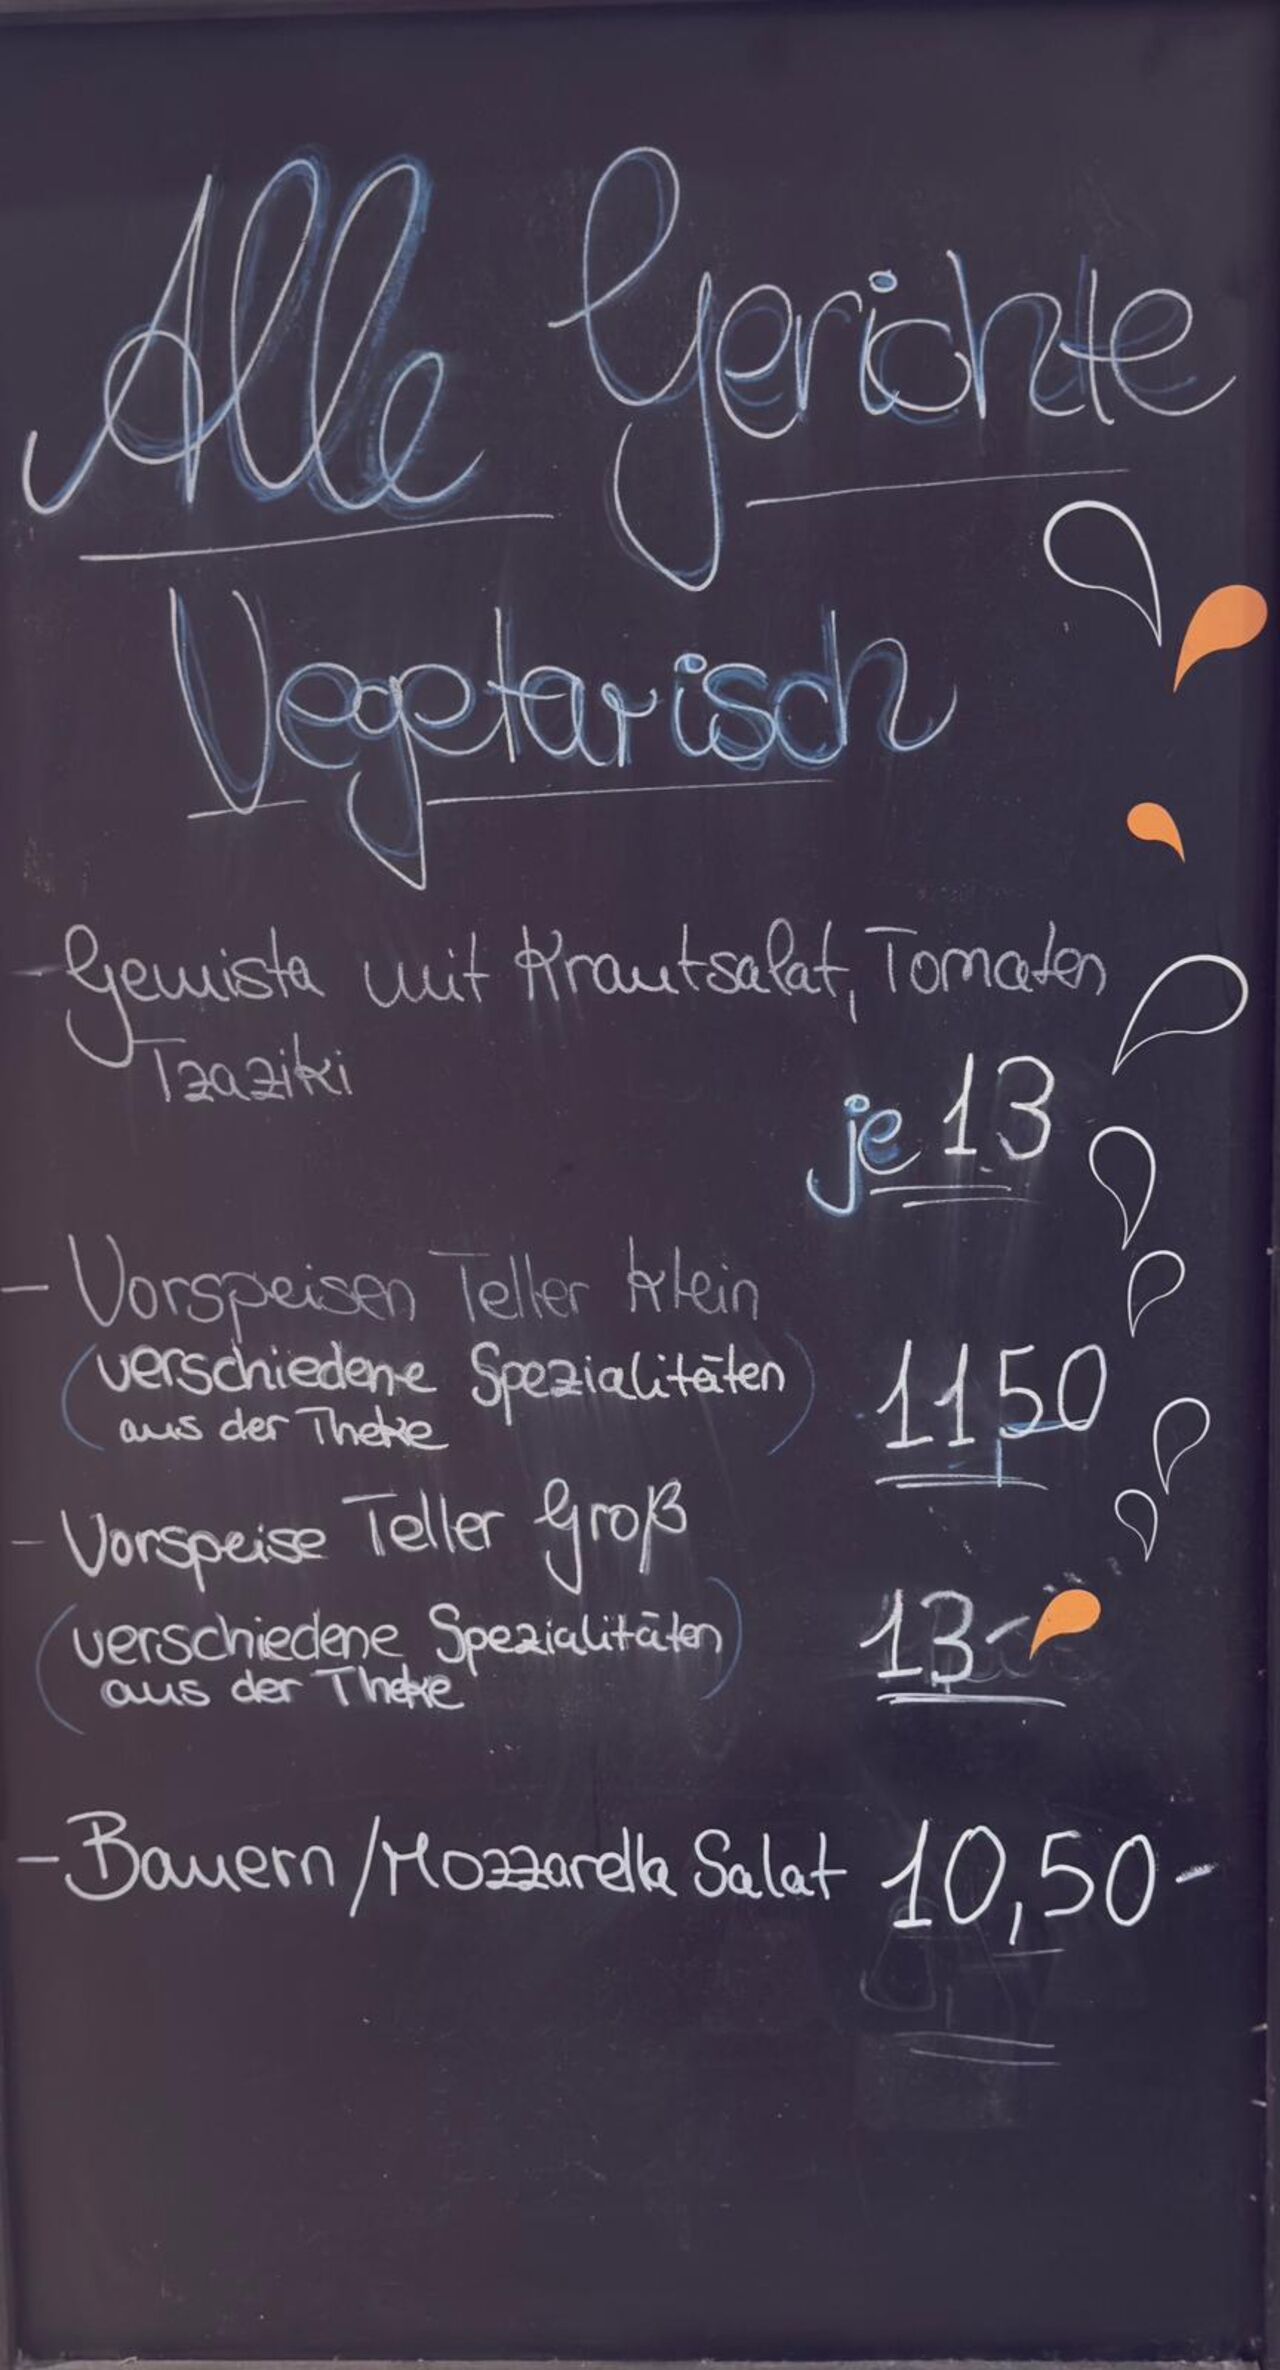 Alle Gerichte
Vegetarisch
- Gemista mit Krautsalat, Tomaten
Tzaziki
je 13
- Vorspeisen Teller Klein
(verschiedene Spezialitäten
aus der Theke)
11,50
- Vorspeise Teller Groß
(verschiedene Spezialitäten
aus der Theke)
13-
- Bauern/Mozzarella Salat 10,50-